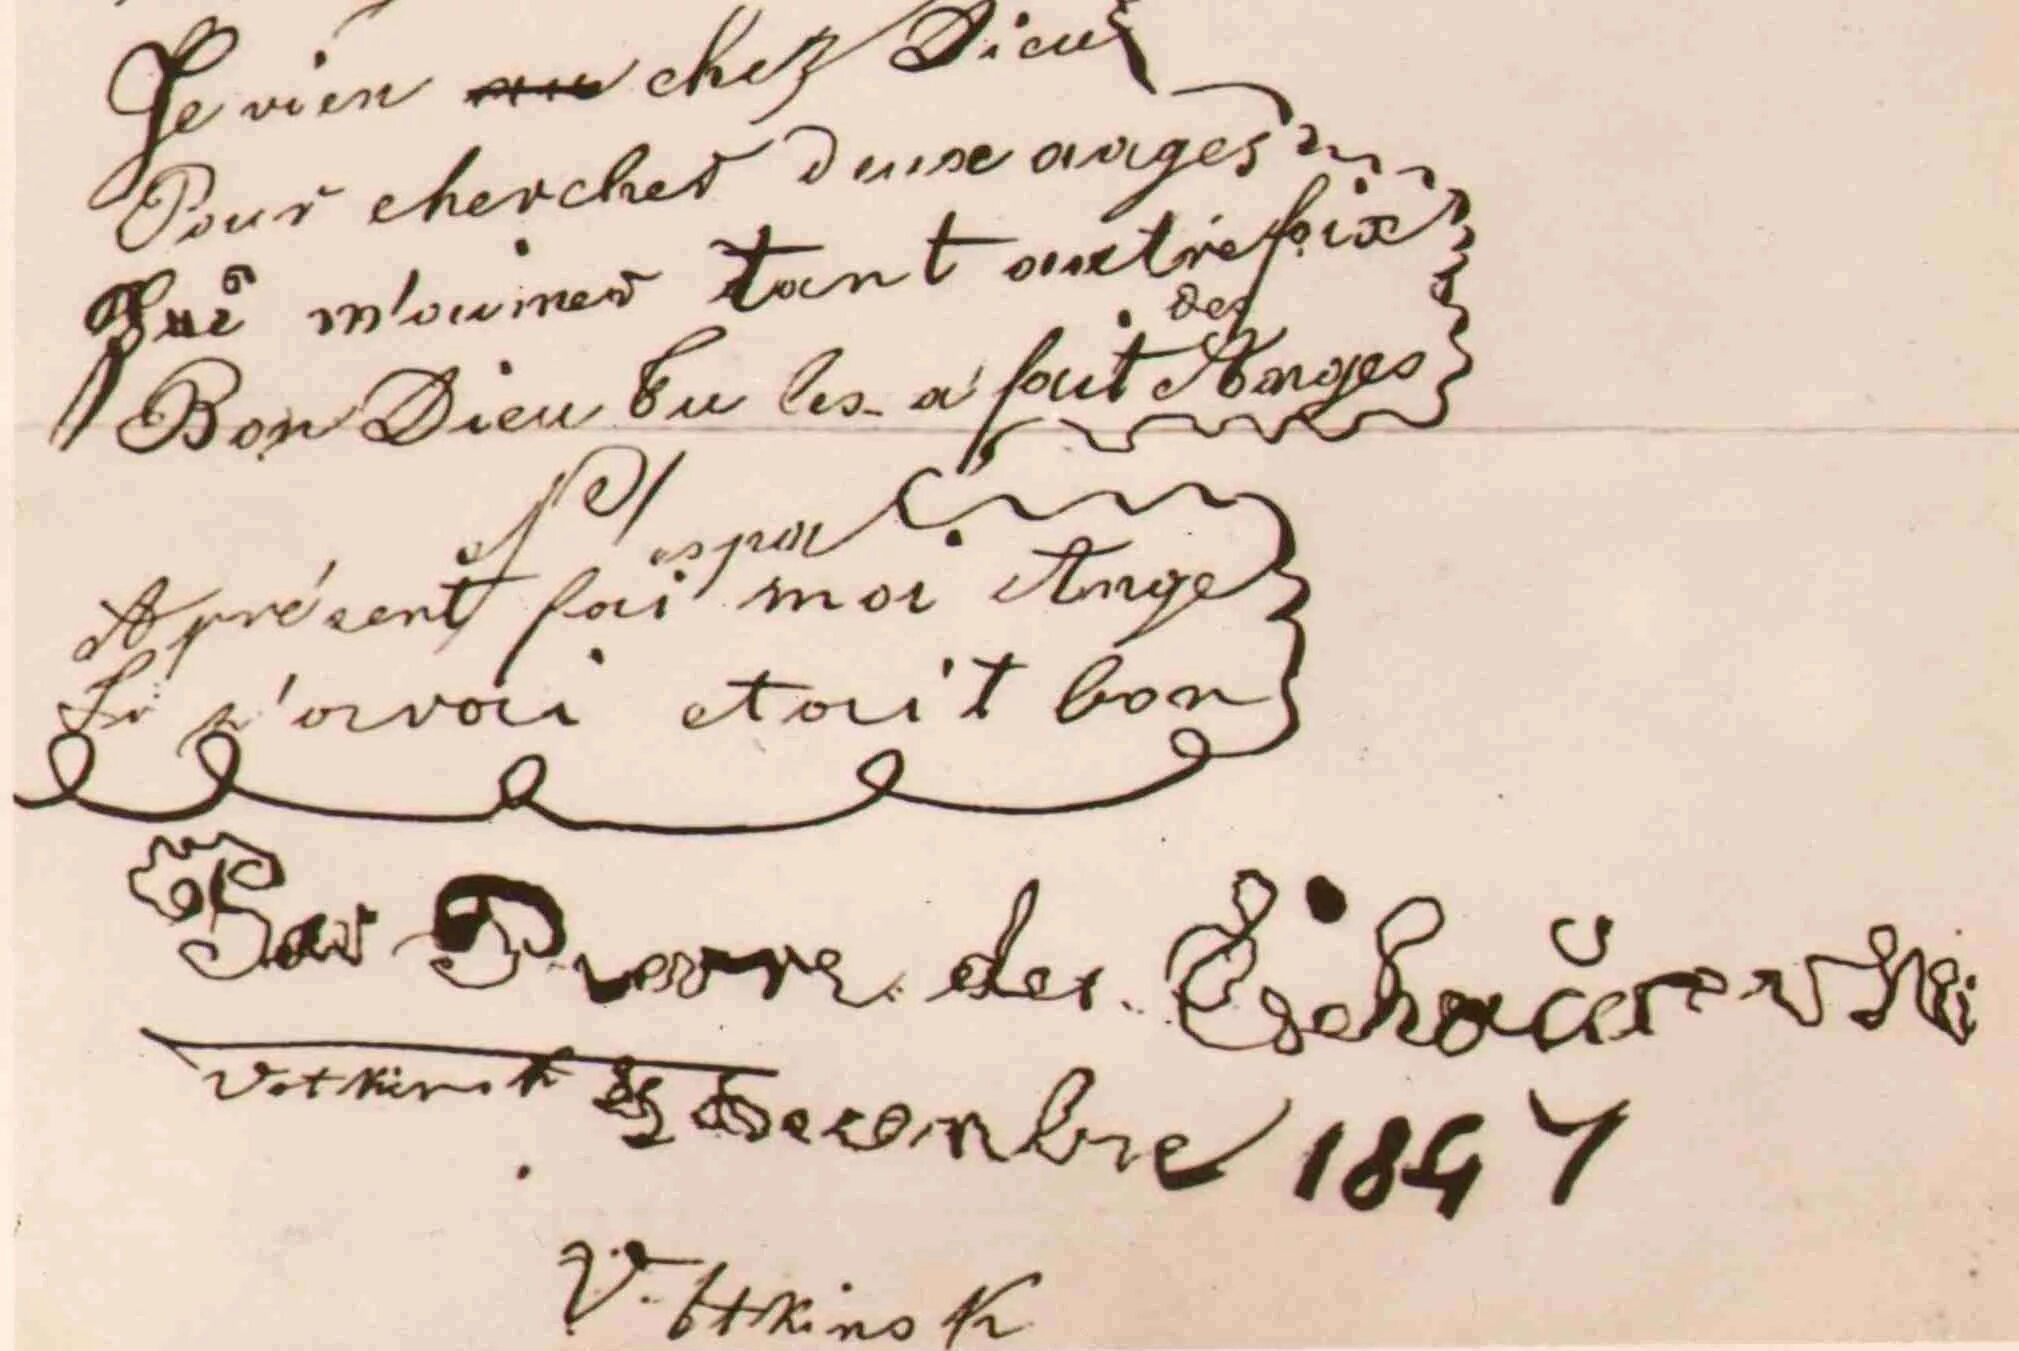 Je vien chez Dieu
Pour chercher deux anges
Que m'aimer tant autrefoix
des
Bon Dieu tu les a fait Anges
espa
Aprésent fai moi Ange
Si s'avai etait bon
Par Pierre de Tschaĭkowski
Votkinsk Decembre 1847
Votkinsk